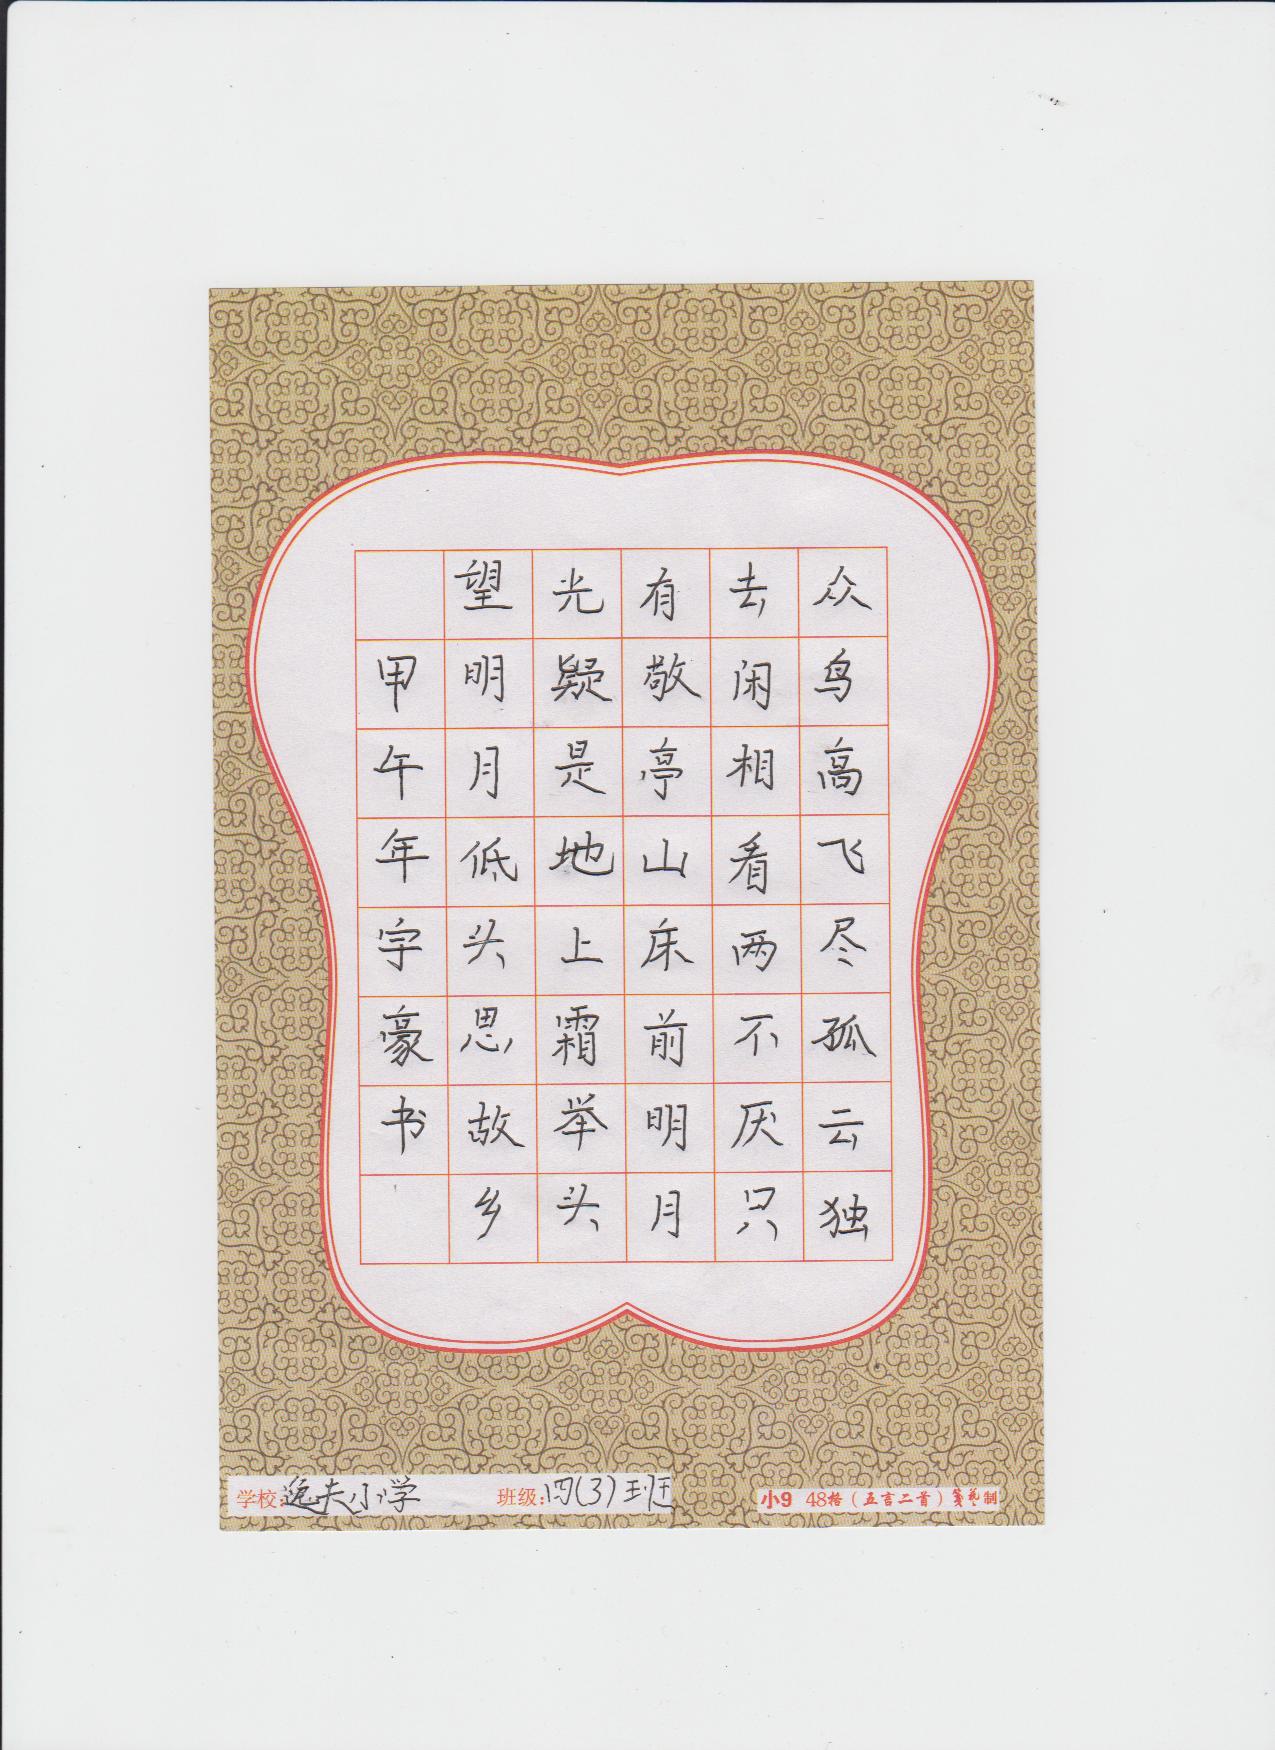 众鸟高飞尽孤云独
去闲相看两不厌只
有敬亭山床前明月
光疑是地上霜举头
望明月低头思故乡
甲午年宇豪书
学校:逸夫小学 班级:四(3)班 小9 48格(五言二首)笺艺制